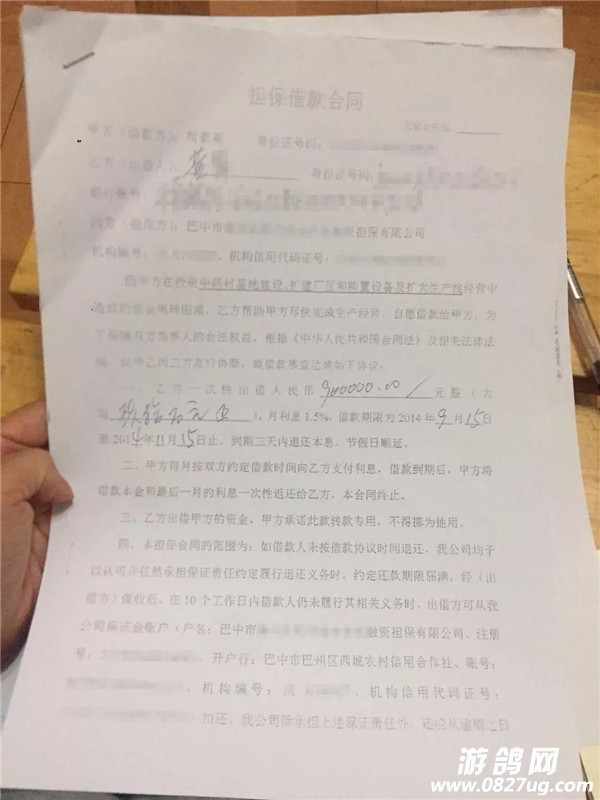 担保借款合同
甲方（借款方）： 身份证号码：
乙方（出借人）： 身份证号码：
银行账号：
丙方（担保方）：巴中市 担保有限公司
机构编号： 、机构信用代码证号：
因甲方在投资中药材基地建设、扩建厂区和购置设备及扩大生产线经营中
造成的资金周转困难，乙方帮助甲方尽快完成生产经营，自愿借款给甲方，为
了保障双方当事人的合法权益，根据《中华人民共和国合同法》及相关法律法
规，经甲乙丙三方友好协商，就借款事宜达成如下协议：
一、乙方一次性出借人民币 900000.00 元整（大
写 ）。月利息1.5%，借款期限为2014年9月15日
至2014年11月15日止，到期三天内退还本息，节假日顺延。
二、甲方每月按双方约定借款时间向乙方支付利息，借款到期后，甲方将
借款本金和最后一月的利息一次性退还给乙方，本合同终止。
三、乙方出借甲方的资金，甲方承诺此款转款专用，不得挪为他用。
四、本担保合同的范围为：如借款人未按借款协议时间退还，我公司均予
以认可并任然承担保证责任约定履行退还义务时，约定还款期限届满，经（出
借方）催收后，在10个工作日内借款人仍未履行其相关义务时，出借方可从我
公司保证金账户（户名：巴中市 融资担保有限公司、注册
号： 、开户行：巴中市巴州区西城农村信用合作社、账号：
、机构编号： 、机构信用代码证号：
扣还，我公司除承担上述保证责任外，还应从逾期之日
游鸽网
www.0827ug.com